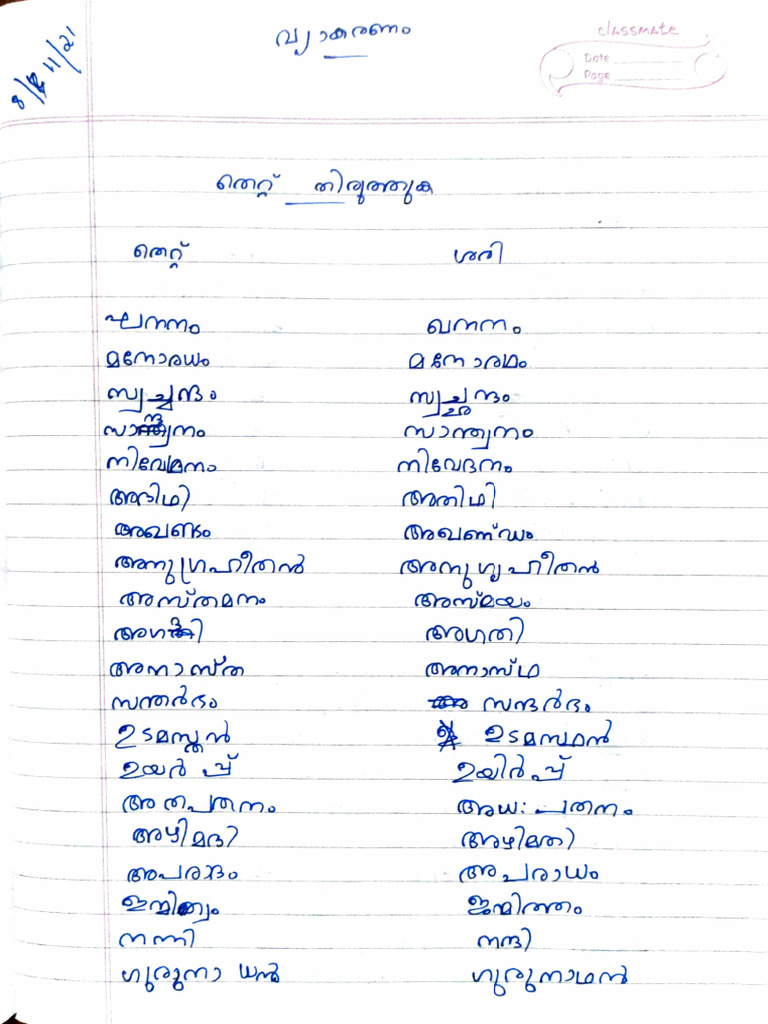 8/11/21
വ്യാകരണം
classmate
Date
Page
തെറ്റ് തിരുത്തുക
തെറ്റ് ശരി
ഘനനം ഖനനം
മനോരധം മനോരഥം
സ്വച്ചന്ദം സ്വച്ഛന്ദം
സാന്ദ്വനം സാന്ത്വനം
നിവേദനം
അഥിതി അതിഥി
അഖണ്ടം അഖണ്ഡം
അനുഗ്രഹീതൻ അനുഗൃഹീതൻ
അസ്തമനം അസ്തമയം
അഗതി
അനാസ്ത അനാസ്ഥ
സന്തർഭം സന്ദർഭം
ഉടമസ്തൻ ഉടമസ്ഥൻ
ഉയർപ്പ് ഉയിർപ്പ്
അതപതനം അധഃപതനം
അഴിമദി അഴിമതി
അപരാദം അപരാധം
നന്നി നന്ദി
ഗുരുനാധൻ ഗുരുനാഥൻ